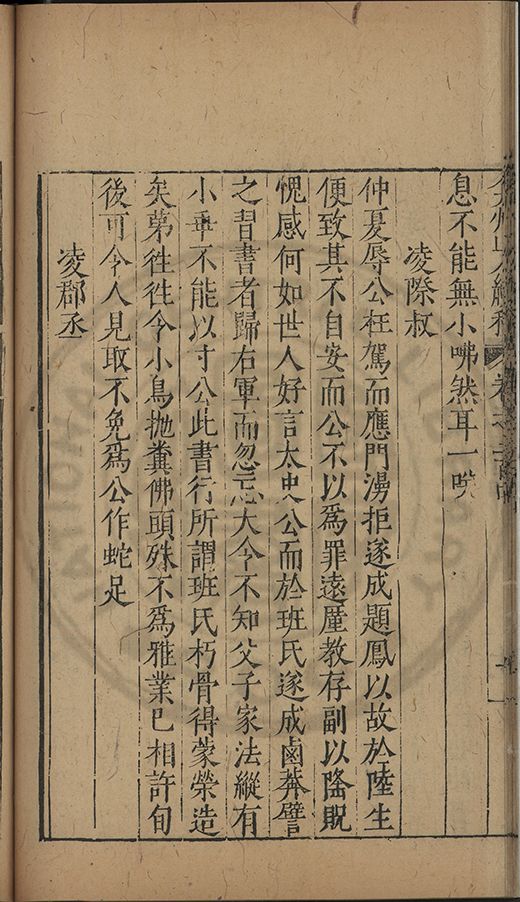 息不能無小咈然耳一哂
凌際叔
仲夏辱公枉駕而應門漫拒遂成題鳳以故於陸生
便致其不自安而公不以爲罪遠厪教存副以隆貺
愧感何如世人好言太史公而於班氏遂成鹵莽譬
之習書者歸右軍而忽忘大令不知父子家法縱有
小乖不能以寸公此書行所謂班氏朽骨得蒙榮造
矣第徃徃令小鳥拋糞佛頭殊不爲雅業已相許旬
後可令人見取不免爲公作蛇足
凌郡丞